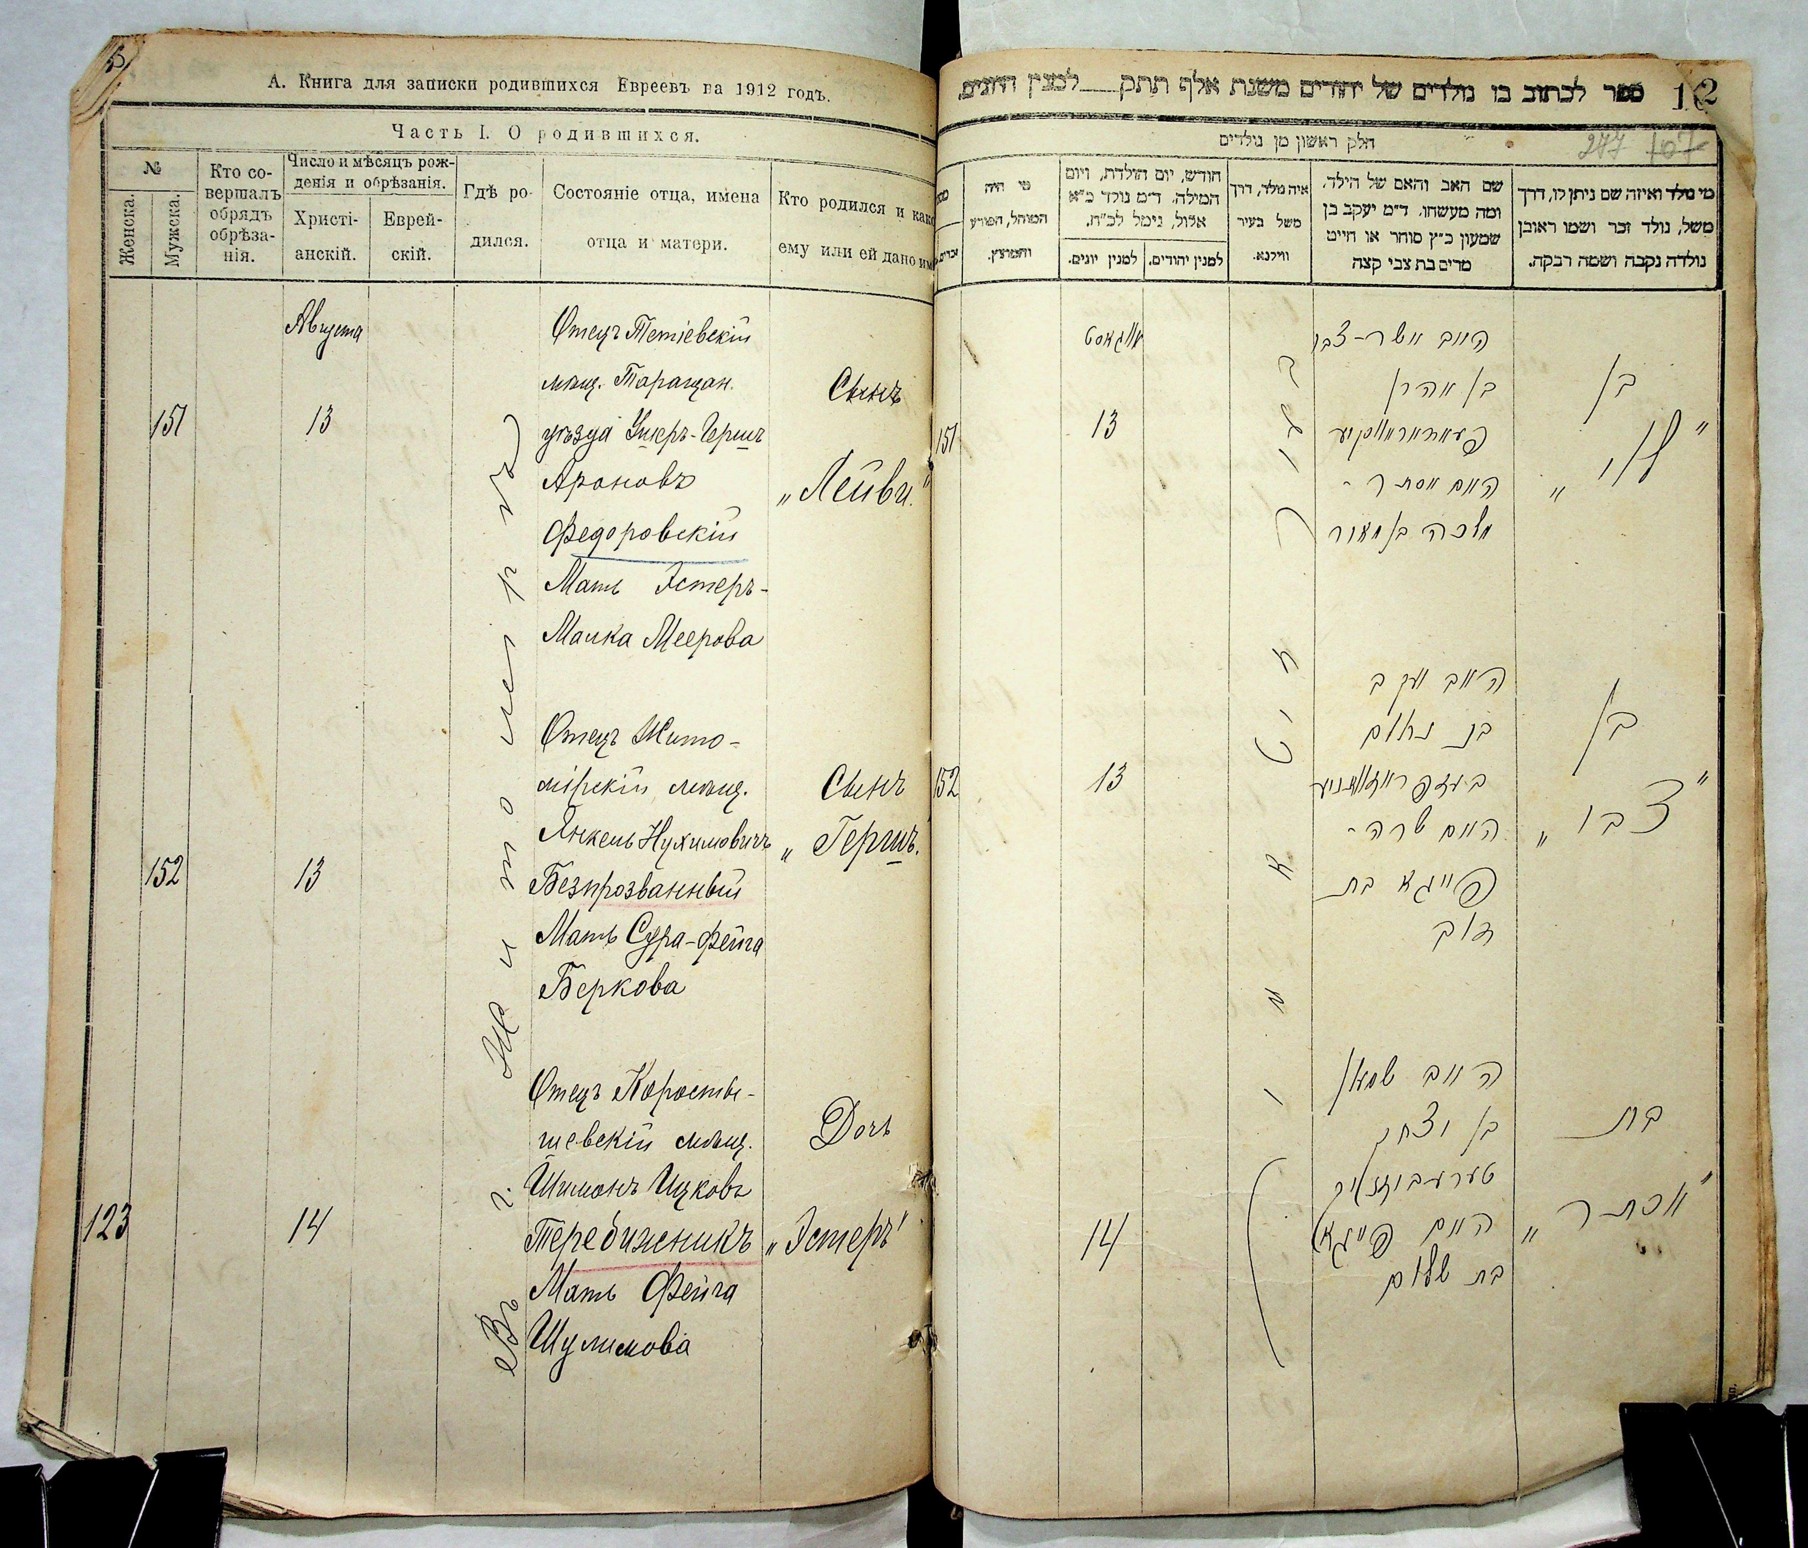 А. Книга для записки родившихся Евреевъ на 1912 годъ.
Часть I. О родившихся.
№
Женска.
Мужска.
Кто со-
вершалъ
обрядъ
обрѣза-
нія.
Число и мѣсяцъ рож-
денія и обрѣзанія.
Христі-
анскій.
Еврей-
скій.
Гдѣ ро-
дился.
Состояніе отца, имена
отца и матери.
Кто родился и како
ему или ей дано им
Августа
151
13
Отецъ Тетіевскій
мѣщ. Таращан.
уѣзда Ушеръ-Гершъ
Ароновъ
Федоровскій
Мать Эстеръ-
Малка Меерова
Сынъ
„Лейви."
152
13
Отецъ Жито-
мірскій мѣщ.
Янкель Нухимовичъ
Безпрозванный
Мать Сура-Фейга
Беркова
Сынъ
„Гершъ."
123
14
Отецъ Коросты-
шевскій мѣщ.
Шимонъ Ицковъ
Теребижникъ
Мать Фейга
Шулимова
Дочь
„Эстеръ"
Въ г. Житомирѣ
ספר לכתוב בו נולדים של יהודים משנת אלף תתק למנין היונים
12
277
חלק ראשון מן נולדים
מי היה
המוהל, הפורע
והמוצץ.
חודש, יום הולדת, ויום
המילה. ד״מ נולד כ״א
אלול, נימל לכ״ח.
למנין יונים.
למנין יהודים.
איה נולד, דרך
משל בעיר
ווילנא.
שם האב והאם של הילד,
ומה מעשהו. ד״מ יעקב בן
שמעון כ״ץ סוחר או חייט
מרים בת צבי קצה
מי נולד ואיזה שם ניתן לו, דרך
משל, נולד זכר ושמו ראובן
נולדה נקבה ושמה רבקה.
אווגוסט
151
13
האב אשר-צבי
בן אהרן
האם אסתר-
מלכה בת מאיר
בן
„לוי"
152
13
האב יעקב
בן נחום
האם שרה-
פייגא בת
דוב
בן
„צבי"
14
האב שמעון
בן יצחק
האם פייגא
בת שלום
בת
„אסתר"